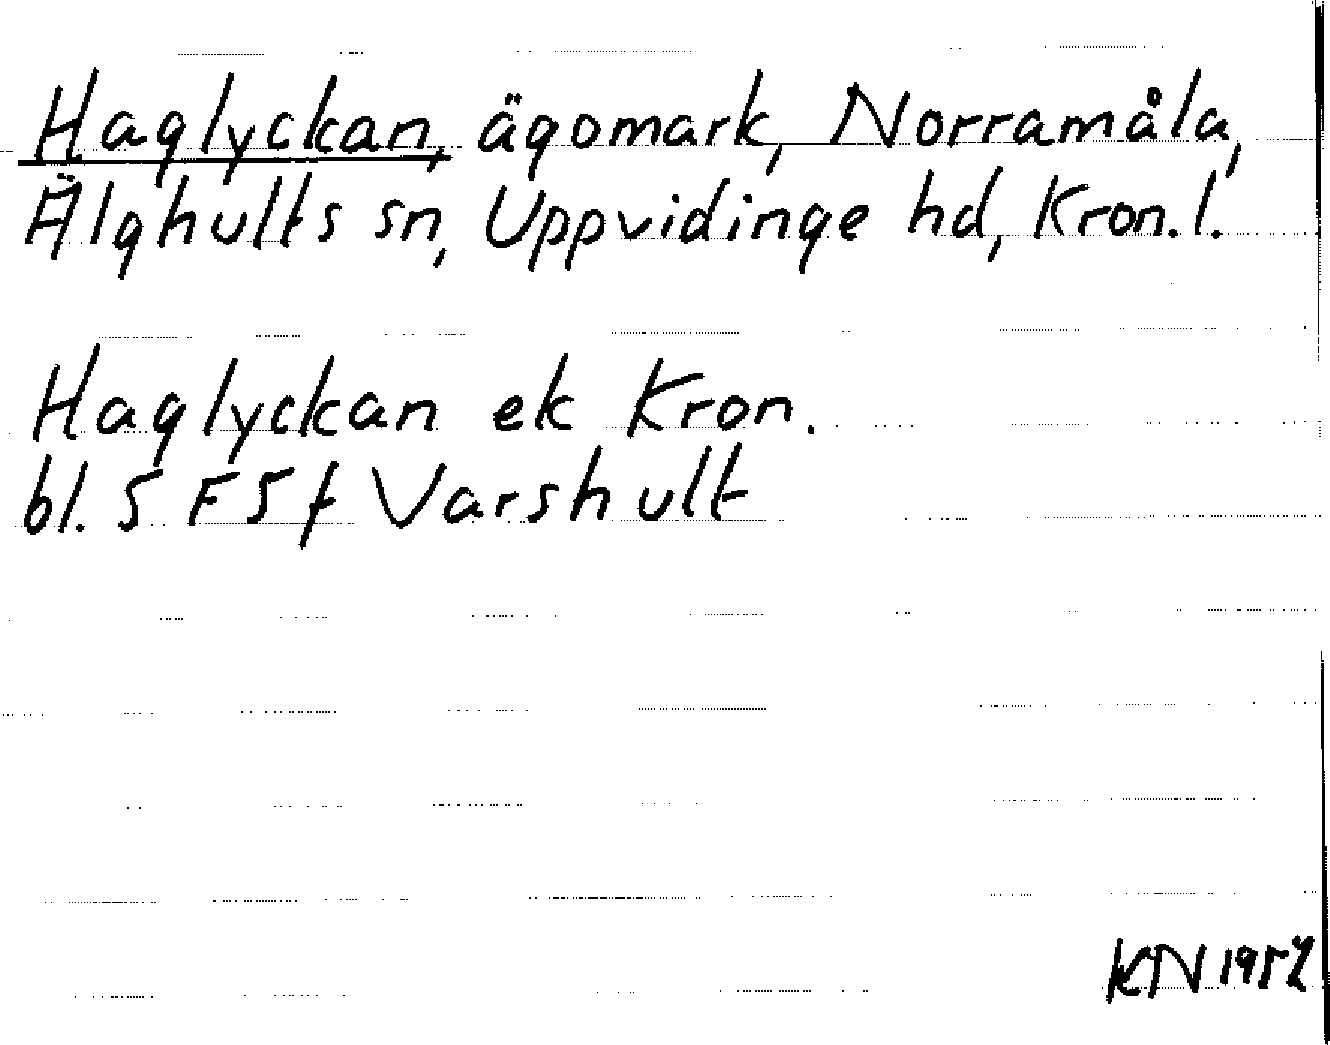 Haglyckan, ägomark, Norramåla,
Älghults sn, Uppvidinge hd, Kron. l.
Haglyckan ek Kron.
bl. 5 F 5 f Varshult
KN 1957